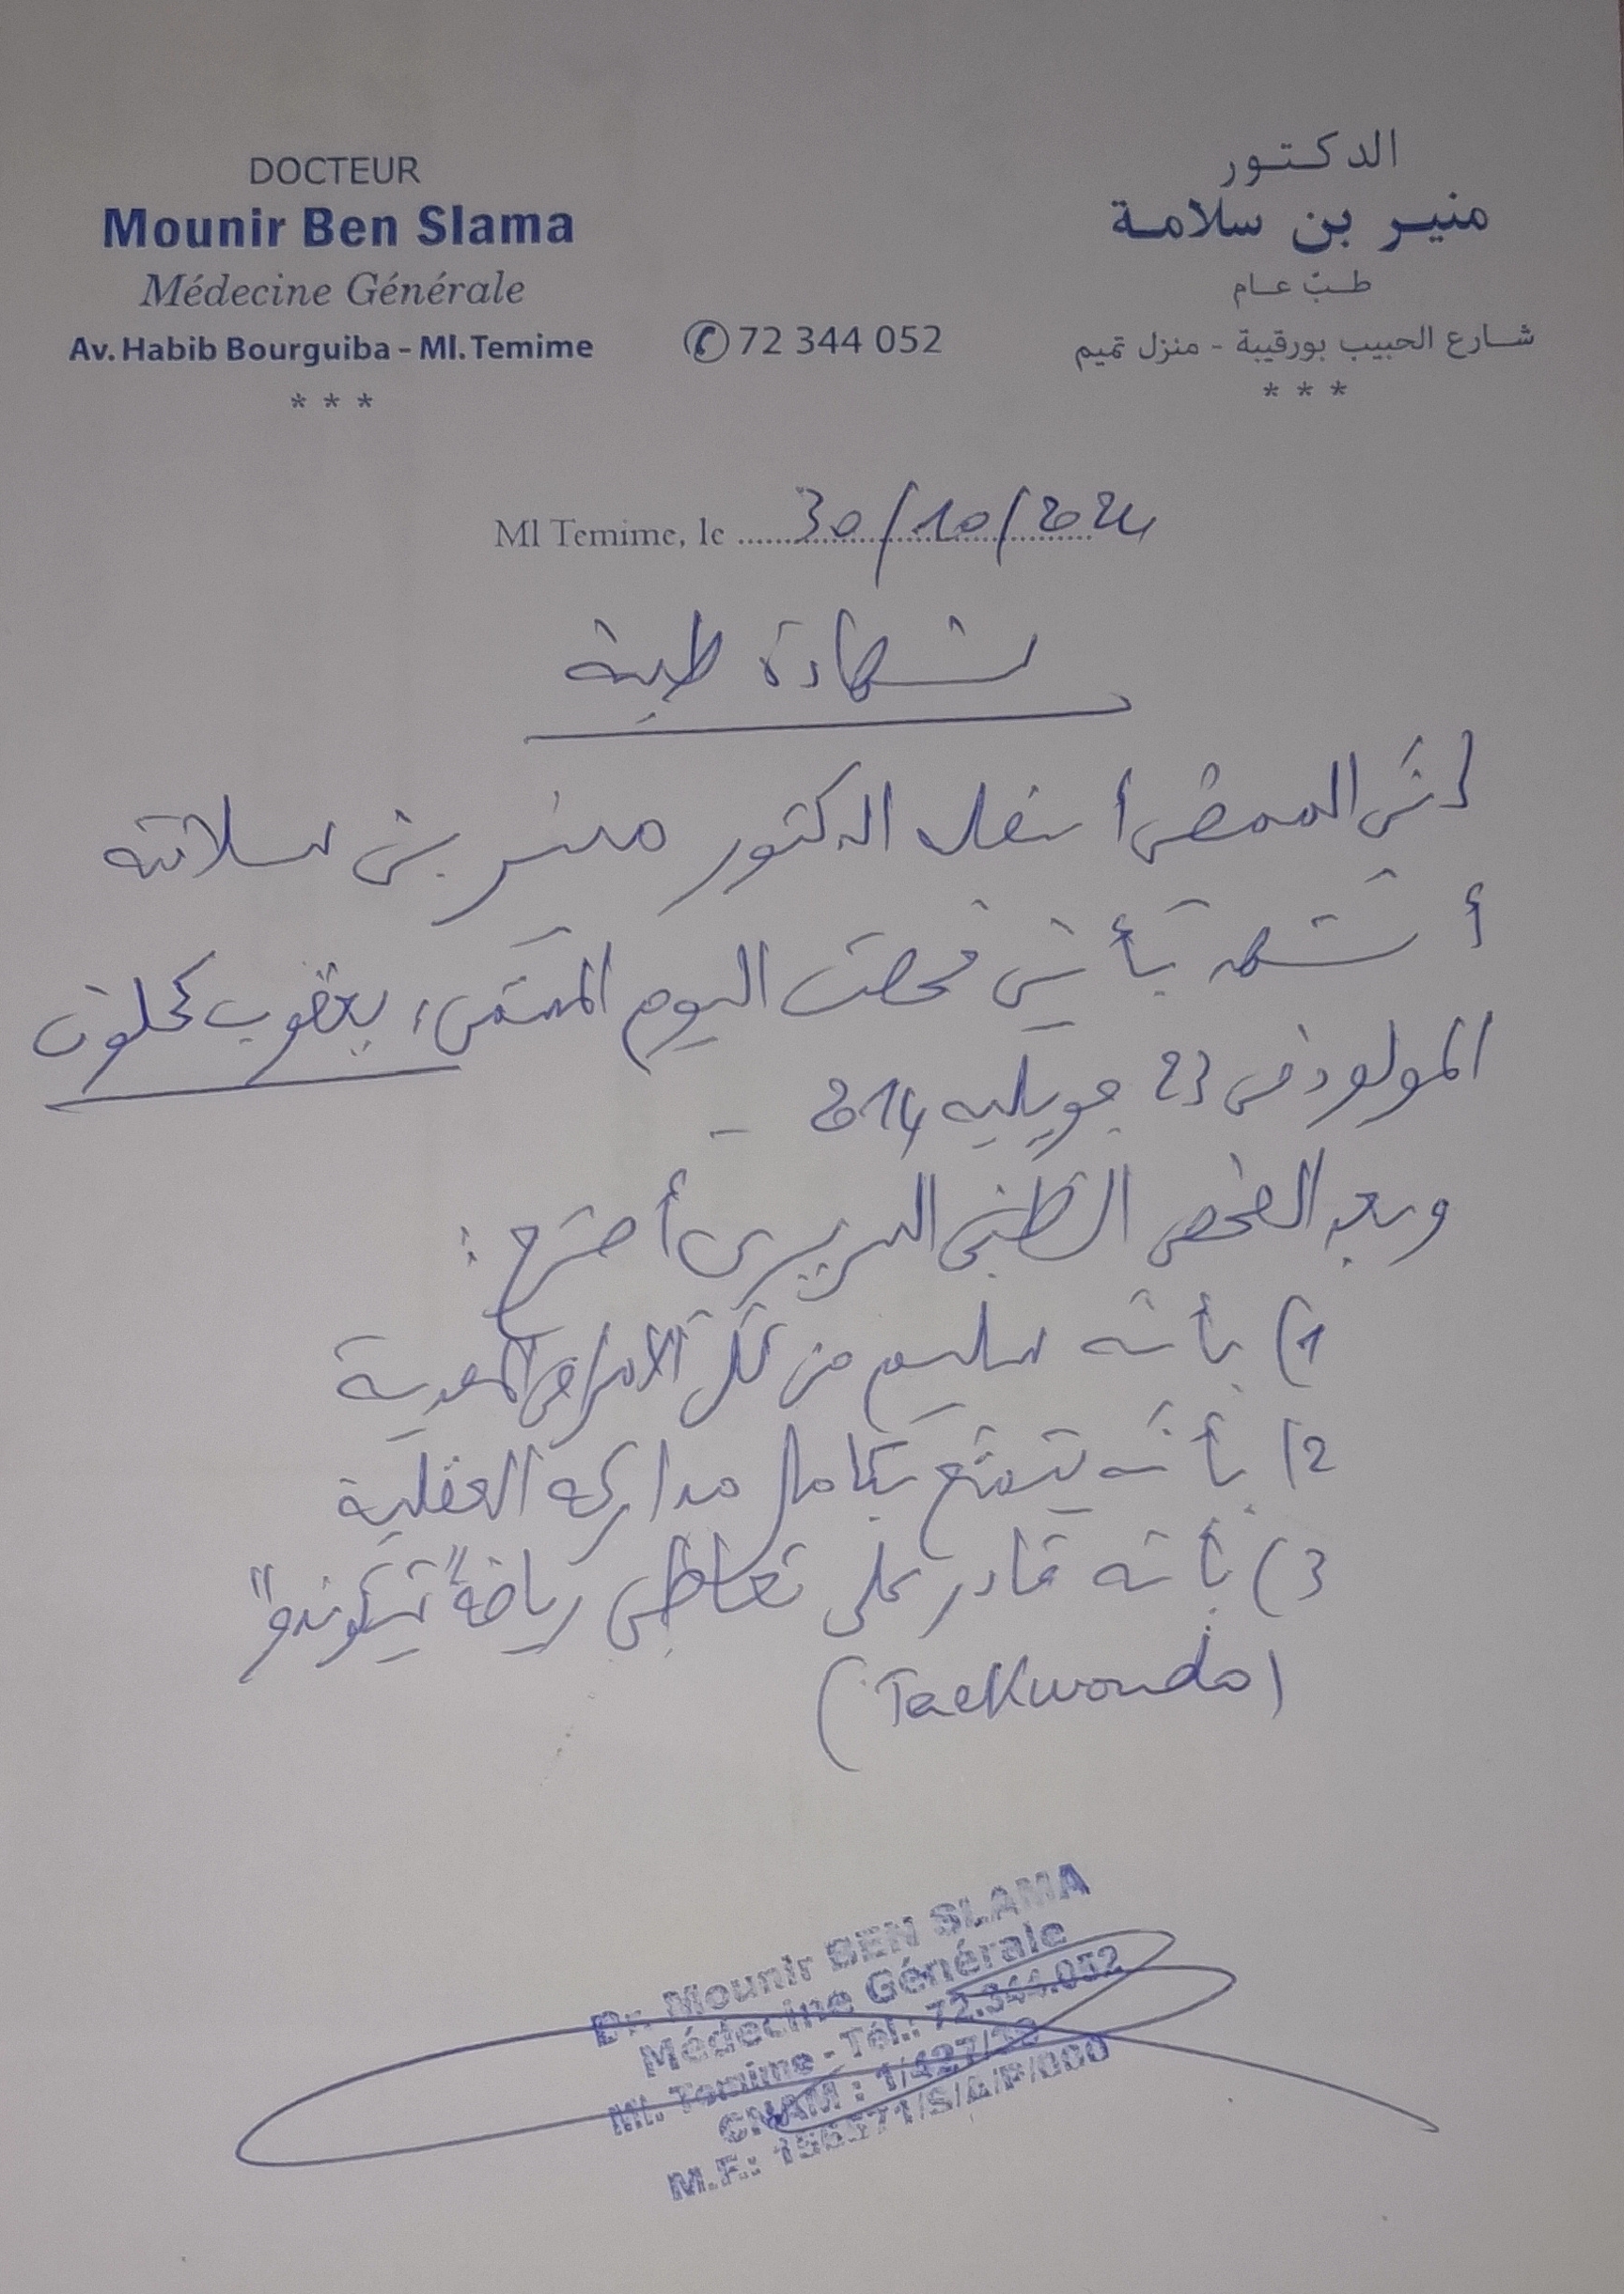 DOCTEUR
Mounir Ben Slama
Médecine Générale
Av. Habib Bourguiba - Ml. Temime
* * *
✆ 72 344 052
الدكتور
منير بن سلامة
طب عام
شارع الحبيب بورقيبة - منزل تميم
* * *
Ml Temime, le 30/10/2024
شهادة طبية
إني الممضي أسفله الدكتور منير بن سلامة
أشهد بأني فحصت اليوم المسمى، يعقوب كحلون
المولود في 23 جويليه 2014 -
وبعد الفحص الطبي السريري أصرح :
1) بأنه سليم من كل الأمراض المعدية
2) بأنه يتمتع بكامل مداركه العقلية
3) بأنه قادر على تعاطي رياضة "تيكوندو"
(Taekwondo)
Dr. Mounir BEN SLAMA
Médecine Générale
Ml. Temime - Tél.: 72.344.052
CNAM : 1/427/
M.F.: /S/A/P/000